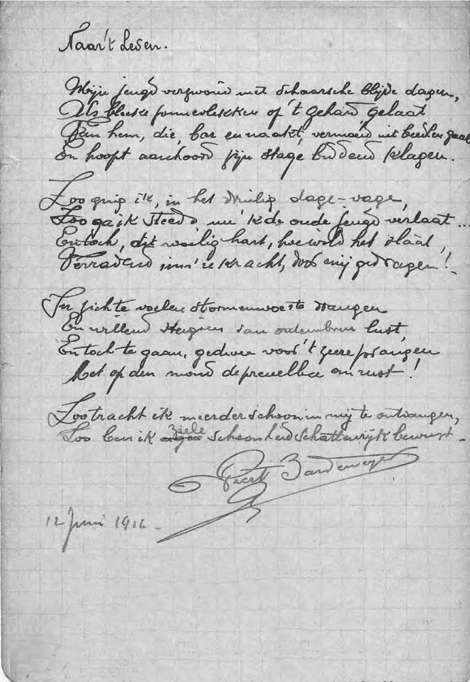 Naar't Leven.
Mijn jeugd verzwond met schaarsche blijde dagen,
Als bleeke zonnevlekken op 't gehard gelaat
Van hem, die, bar en naakt, vermoeid uit beedlen gaat
En hoopt aanhoord zijn stage biddend klagen.
Zoo ging ik, in het druilig dage-vage,
Zoo ga ik steeds nu 'k de oude jeugd verlaat ...
En toch, dit woelig hart, hoe wild het slaat,
Verradend kracht, doet mij gedragen!
In zich te voelen stormenwoeste drangen
En willend van lust,
En toch te gaan, gedwee voor 't
Met op den mond de prevelbee om rust!
Zoo tracht ik meerder schoon in mij te ontvangen,
Zoo ben ik ziele schoonheid schattenrijk bewust.
12 Juni 1916